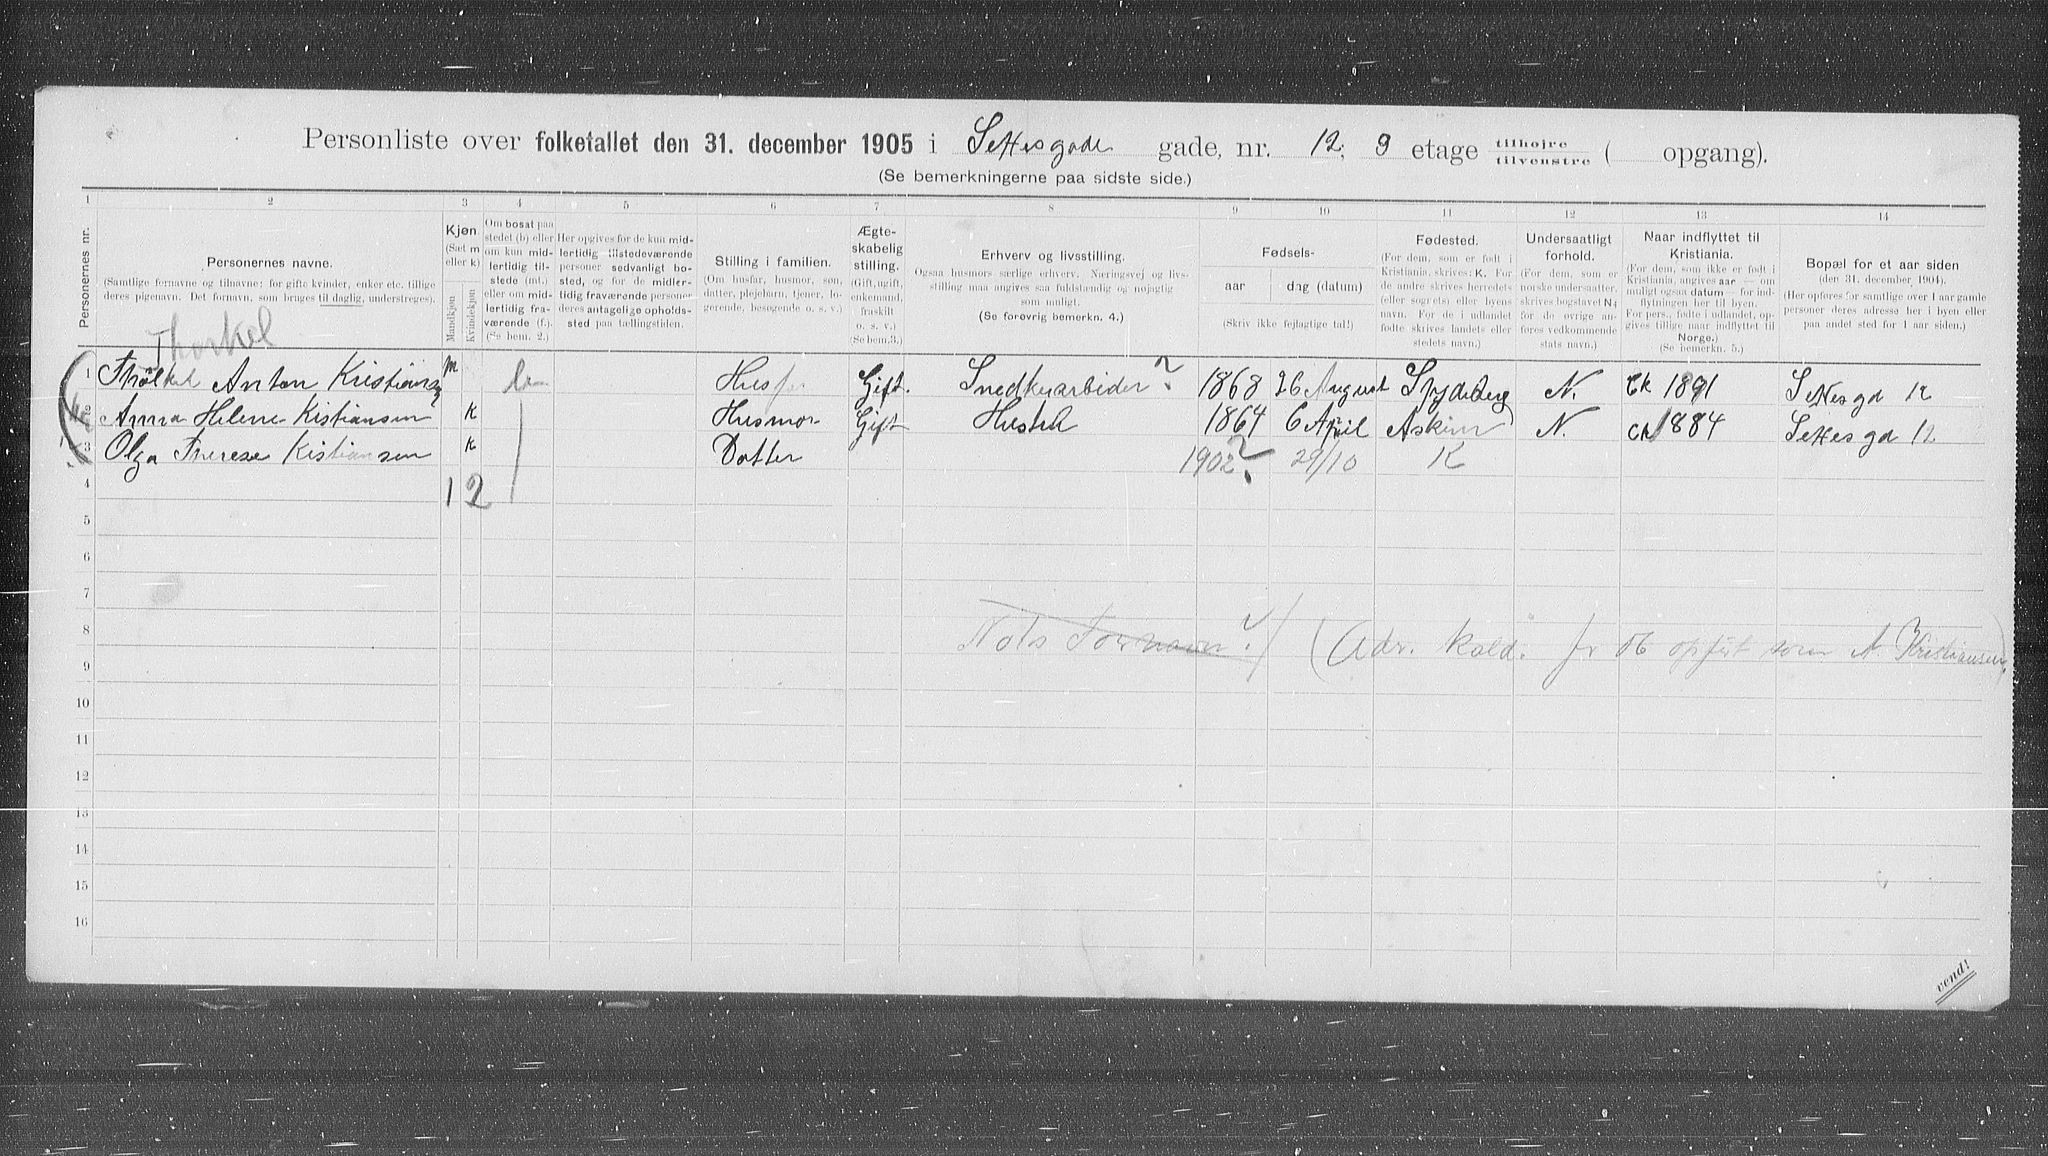 Personliste over folketallet den 31. december 1905 i Settesgade gade, nr. 12; 3 etage tilhøjre tilvenstre ( opgang).
(Se bemerkningerne paa sidste side.)
1 2 3 4 5 6 7 8 9 10 11 12 13 14
Personernes nr.
Personernes navne.
(Samtlige fornavne og tilnavne; for gifte kvinder, enker etc. tillige
deres pigenavn. Det fornavn, som bruges til daglig, understreges).
Kjøn
(Sæt m
eller k)
Mandkjøn
Kvindekjøn
Om bosat paa
stedet (b) eller
om kun mid-
lertidig til-
stede (mt.)
eller om mid-
lertidig fra-
værende (f.).
(Se bem. 2.)
Her opgives for de kun mid-
lertidig tilstedeværende
personer sedvanligt bo-
sted, og for de midler-
tidig fraværende personer
deres antagelige opholds-
sted paa tællingstiden.
Stilling i familien.
(Om husfar, husmor, søn,
datter, plejebarn, tjener, lo-
gerende, besøgende o. s. v.)
Ægte-
skabelig
stilling.
(Gift, ugift,
enkemand,
fraskilt
o. s. v.)
(Se bem. 3.)
Erhverv og livsstilling.
Ogsaa husmors særlige erhverv. Næringsvej og livs-
stilling maa angives saa fuldstændig og nøjagtig
som muligt.
(Se forøvrig bemerkn. 4.)
Fødsels-
aar dag (datum)
(Skriv ikke fejlagtige tal!)
Fødested.
(For dem, som er født i
Kristiania, skrives: K. For
de andre skrives herredets
(eller sognets) eller byens
navn. For de i udlandet
fødte skrives landets eller
stedets navn.)
Undersaatligt
forhold.
(For dem, som er
norske undersaatter,
skrives bogstavet N;
for de øvrige an-
føres vedkommende
stats navn.)
Naar indflyttet til
Kristiania.
(For dem, som ikke er født i
Kristiania, angives aar — om
muligt ogsaa datum — for ind-
flytningen her til byen.
For pers., fødte i udlandet, op-
gives tillige naar indflyttet til
Norge.)
(Se bemerkn. 5.)
Bopæl for et aar siden
(den 31. december 1904).
(Her opføres for samtlige over 1 aar gamle
personer deres adresse her i byen eller
paa andet sted for 1 aar siden.)
Thorkel
1 Anton Kristiansen m b Husfar Gift. Snedkerarbeider ? 1868 26 August Spydeberg N. Ck 1891 Settesgd 12
2 Anna Helene Kistiansen k Husmor Gift Hustel 1864 6 April Askim N. Ck 1884 Settesgd 12
3 Olga Therese Kistiansen k Datter 1902 ? 29/10 K
4 1 2
5
6
7
8 Fornavn? / (Adr. kald. for 06 opført som A. Kristiansen)
9
10
11
12
13
14
15
16
vend!